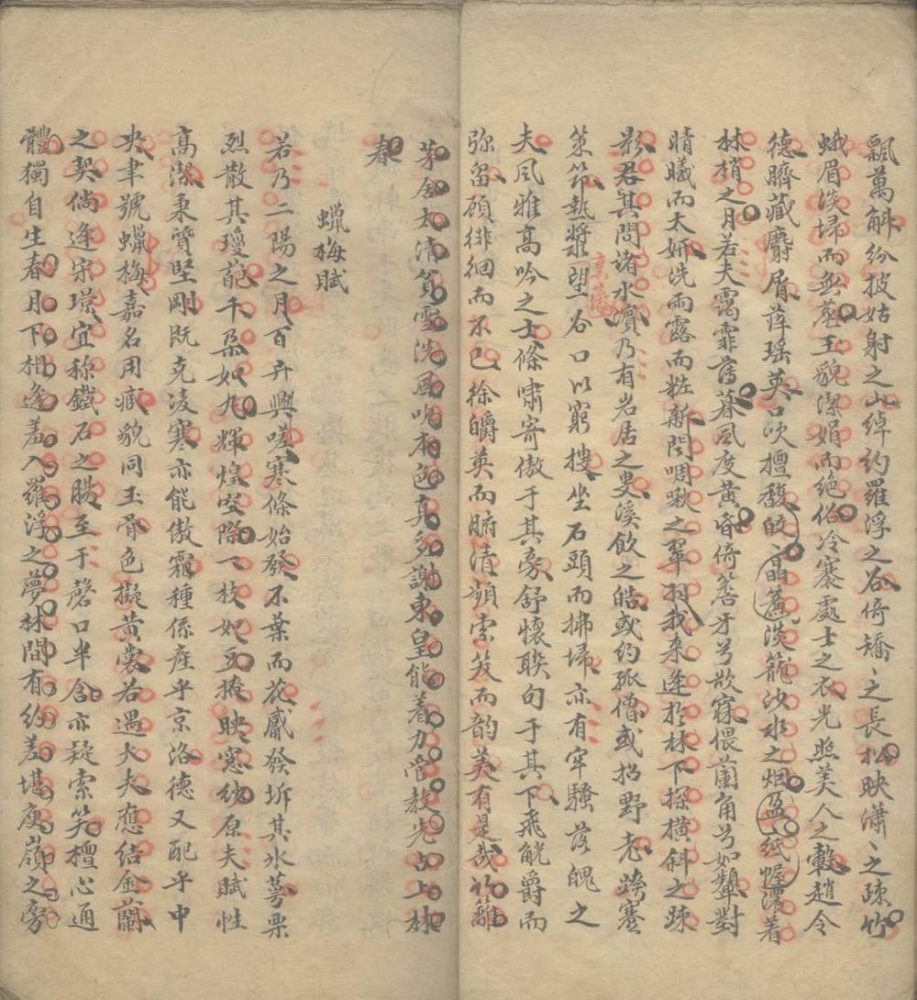 飄萬斛紛披姑射之山綽約羅浮之谷倚矯〻之長松映瀟〻之疎竹
蛾眉淡埽而無蒞玉貌潔娟而絶俗冷裹處士之衣光照美人之轂趙令
德臍藏麝屑薛瑶英口吹檀馥皎〻晶簾淡籠沙水之烟盈〻紙幄濃着
林梢之月若夫靄霏舊暮風度黄昏倚簷牙兮欲寐偎蘭角兮如顰對
晴曦而太妍洗雨露而粧新閒啁啾之翠羽我来逢於林下探横斜之疎
影君其問諸水濱乃有岩居之叟溪飲之皓或約孤僧或招野老跨蹇
策筇執槳望谷口以窮搜坐石頭而掃埽亦有牢騷落魄之
夫風雅高吟之士條嘯寄傲于其旁舒懷联句于其下飛觥爵而
弥留顧徘徊而不已徐嚼英而腑清頻索笈而韵美有是哉竹籬
茅舍太清貧雪洗風吹本色真多謝東皇能着力肯教先占上林
春
蠟梅賦
若乃二陽之月百卉興嗟寒條始發不葉而花感發坼其水萼栗
烈散其瓊葩千朶如九輝煌室際一枝如豆掩映窓紗原夫賦性
高潔秉質堅剛既克凌寒亦能傲霜種係産乎京洛德又配乎中
央聿號蠟梅嘉名用臧貌同玉骨色擬黄裳若遇大夫應结金蘭
之契倘逢宋璟宜称鐵石之腸至于磬口半含亦疑索笑檀心通
體獨自生春月下相逢羞入羅浮之夢林間有約差堪庾嶺之旁